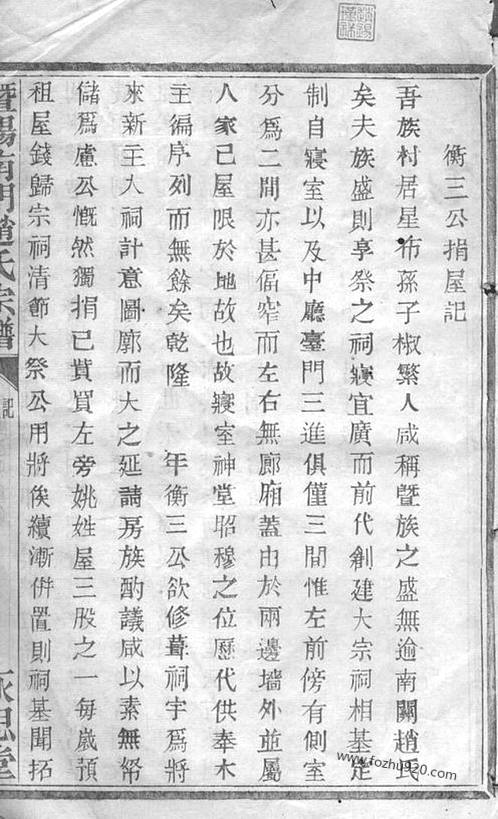 衡三公捐屋記
吾族村居星布孫子椒繁人咸稱暨族之盛無逾南關趙氏
矣夫族盛則享祭之祠寢宜廣而前代創建大宗祠相基定
制自寢室以及中廳臺門三進俱僅三間惟左前傍有側室
分為二間亦甚偪窄而左右無廊廂蓋由於兩邊墻外並屬
人家己屋限於地故也故寢室神堂昭穆之位歷代供奉木
主徧序列而無餘矣乾隆 年衡三公欲修葺祠宇為將
來新主入祠計意圖廓而大之延請房族酌議咸以素無帑
儲為慮公慨然獨捐己貲買左旁姚姓屋三股之一每歲預
租屋錢歸宗祠清節大祭公用將俟續漸併置則祠基開拓
暨陽南門趙氏宗譜
記
永思堂
www.fozhu920.com